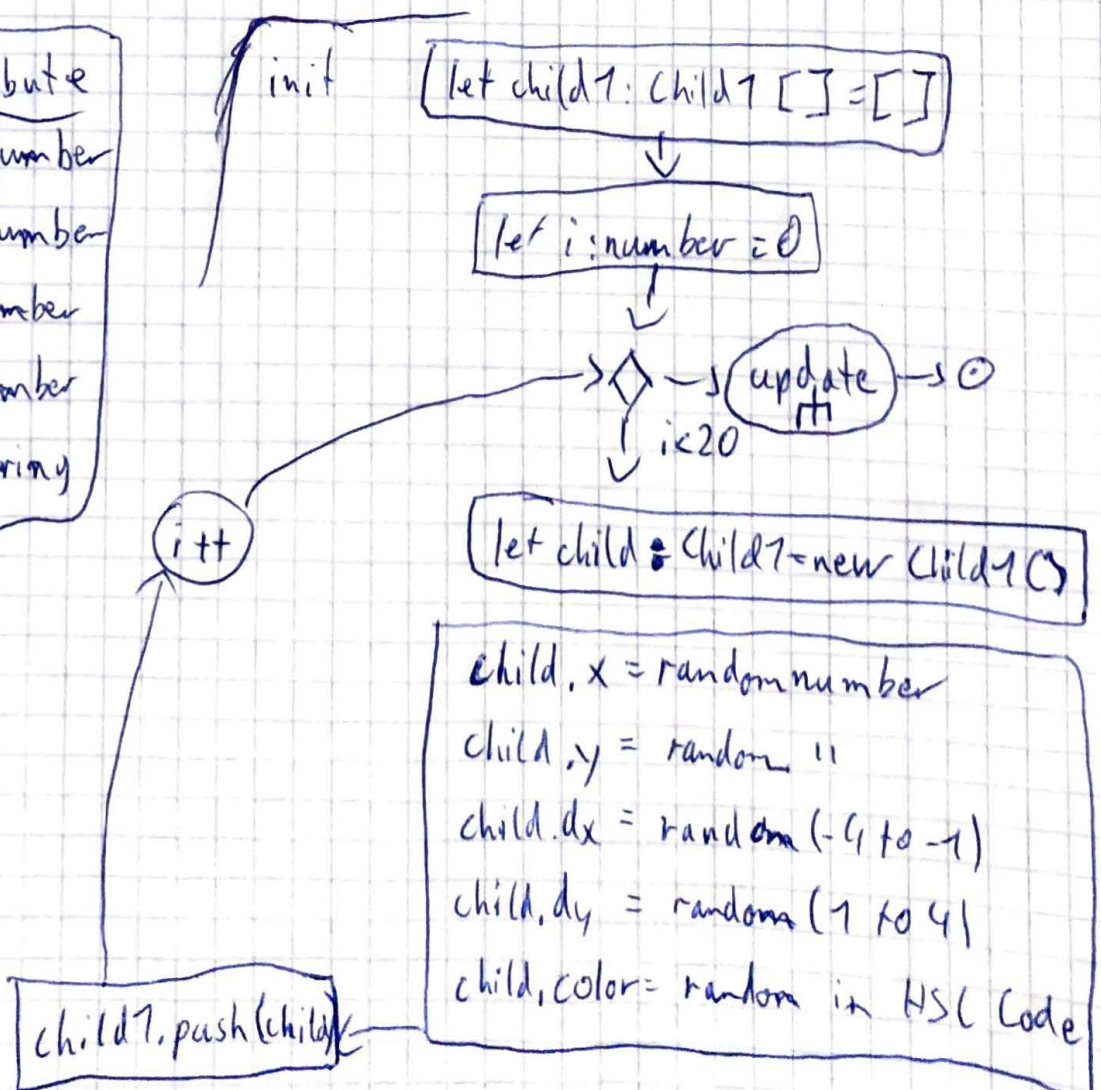 bute
umber
umber
mber
mber
ring
init
let child1: Child1 [] = []
let i:number = 0
update
i<20
i++
let child : Child1 = new Child1()
child.x = randomnumber
child.y = random "
child.dx = random (-4 to -1)
child.dy = random (1 to 4)
child.color = random in HSL Code
child1.push(child)